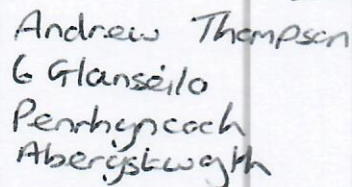 Andrew Thompson
6 Glanseilo
Penrhyncoch
Aberystwyth